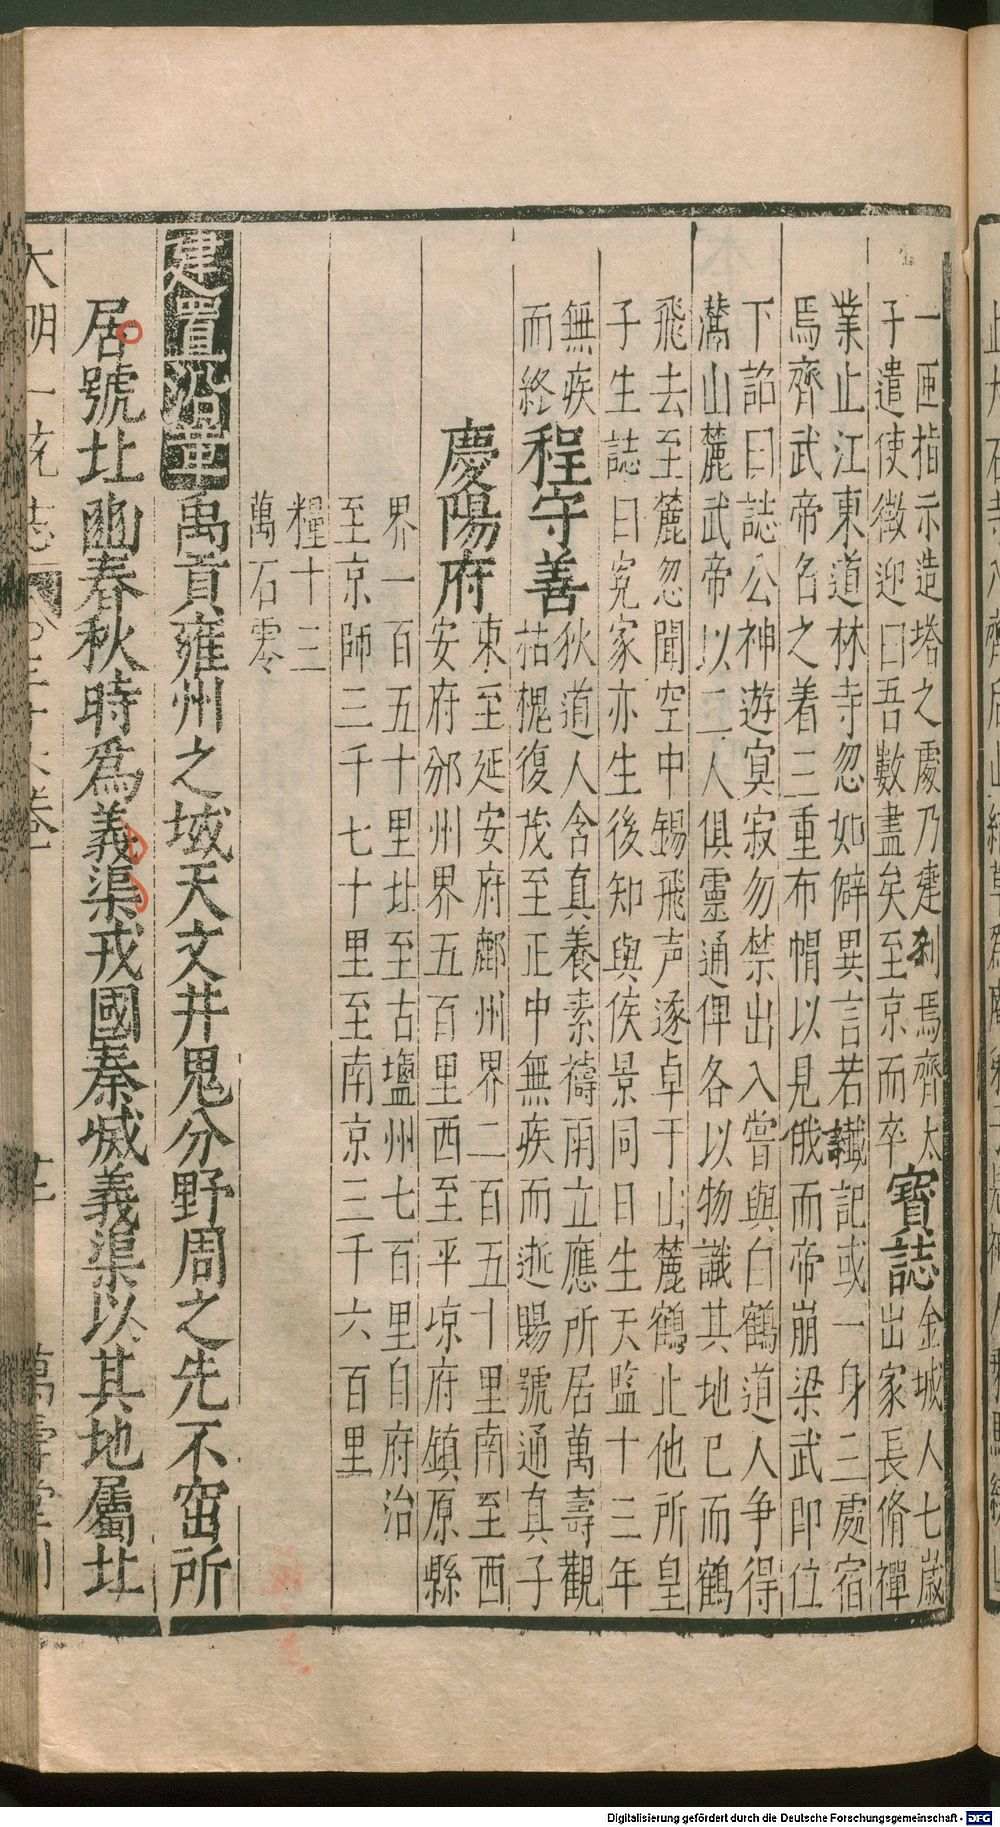 一匝指示造塔之處乃建刹焉齊太
子遣使徵迎曰吾數盡矣至京而卒
寶誌
金城人七歲
出家長脩禪
業止江東道林寺忽如僻異言若讖記或一身三處宿
焉齊武帝名之着三重布帽以見俄而帝崩梁武即位
下詔曰誌公神遊冥寂勿禁出入嘗與白鶴道人争得
灊山麓武帝以二人俱靈通俾各以物識其地已而鶴
飛去至麓忽聞空中錫飛声遂卓于山麓鶴止他所皇
子生誌曰冤家亦生後知與侯景同日生天監十三年
無疾
而終
程守善
狄道人含真養素禱雨立應所居萬壽觀
枯槐復茂至正中無疾而逝賜號通真子
慶陽府
東至延安府鄜州界二百五十里南至西
安府邠州界五百里西至平凉府鎮原縣
界一百五十里北至古鹽州七百里自府治
至京師三千七十里至南京三千六百里
糧十三
萬石零
建置沿革
禹貢雍州之域天文井鬼分野周之先不窋所
居號北豳春秋時爲義渠戎國秦烕義渠以其地屬北
大明一統志
萬壽堂刊
Digitalisierung gefördert durch die Deutsche Forschungsgemeinschaft - DFG